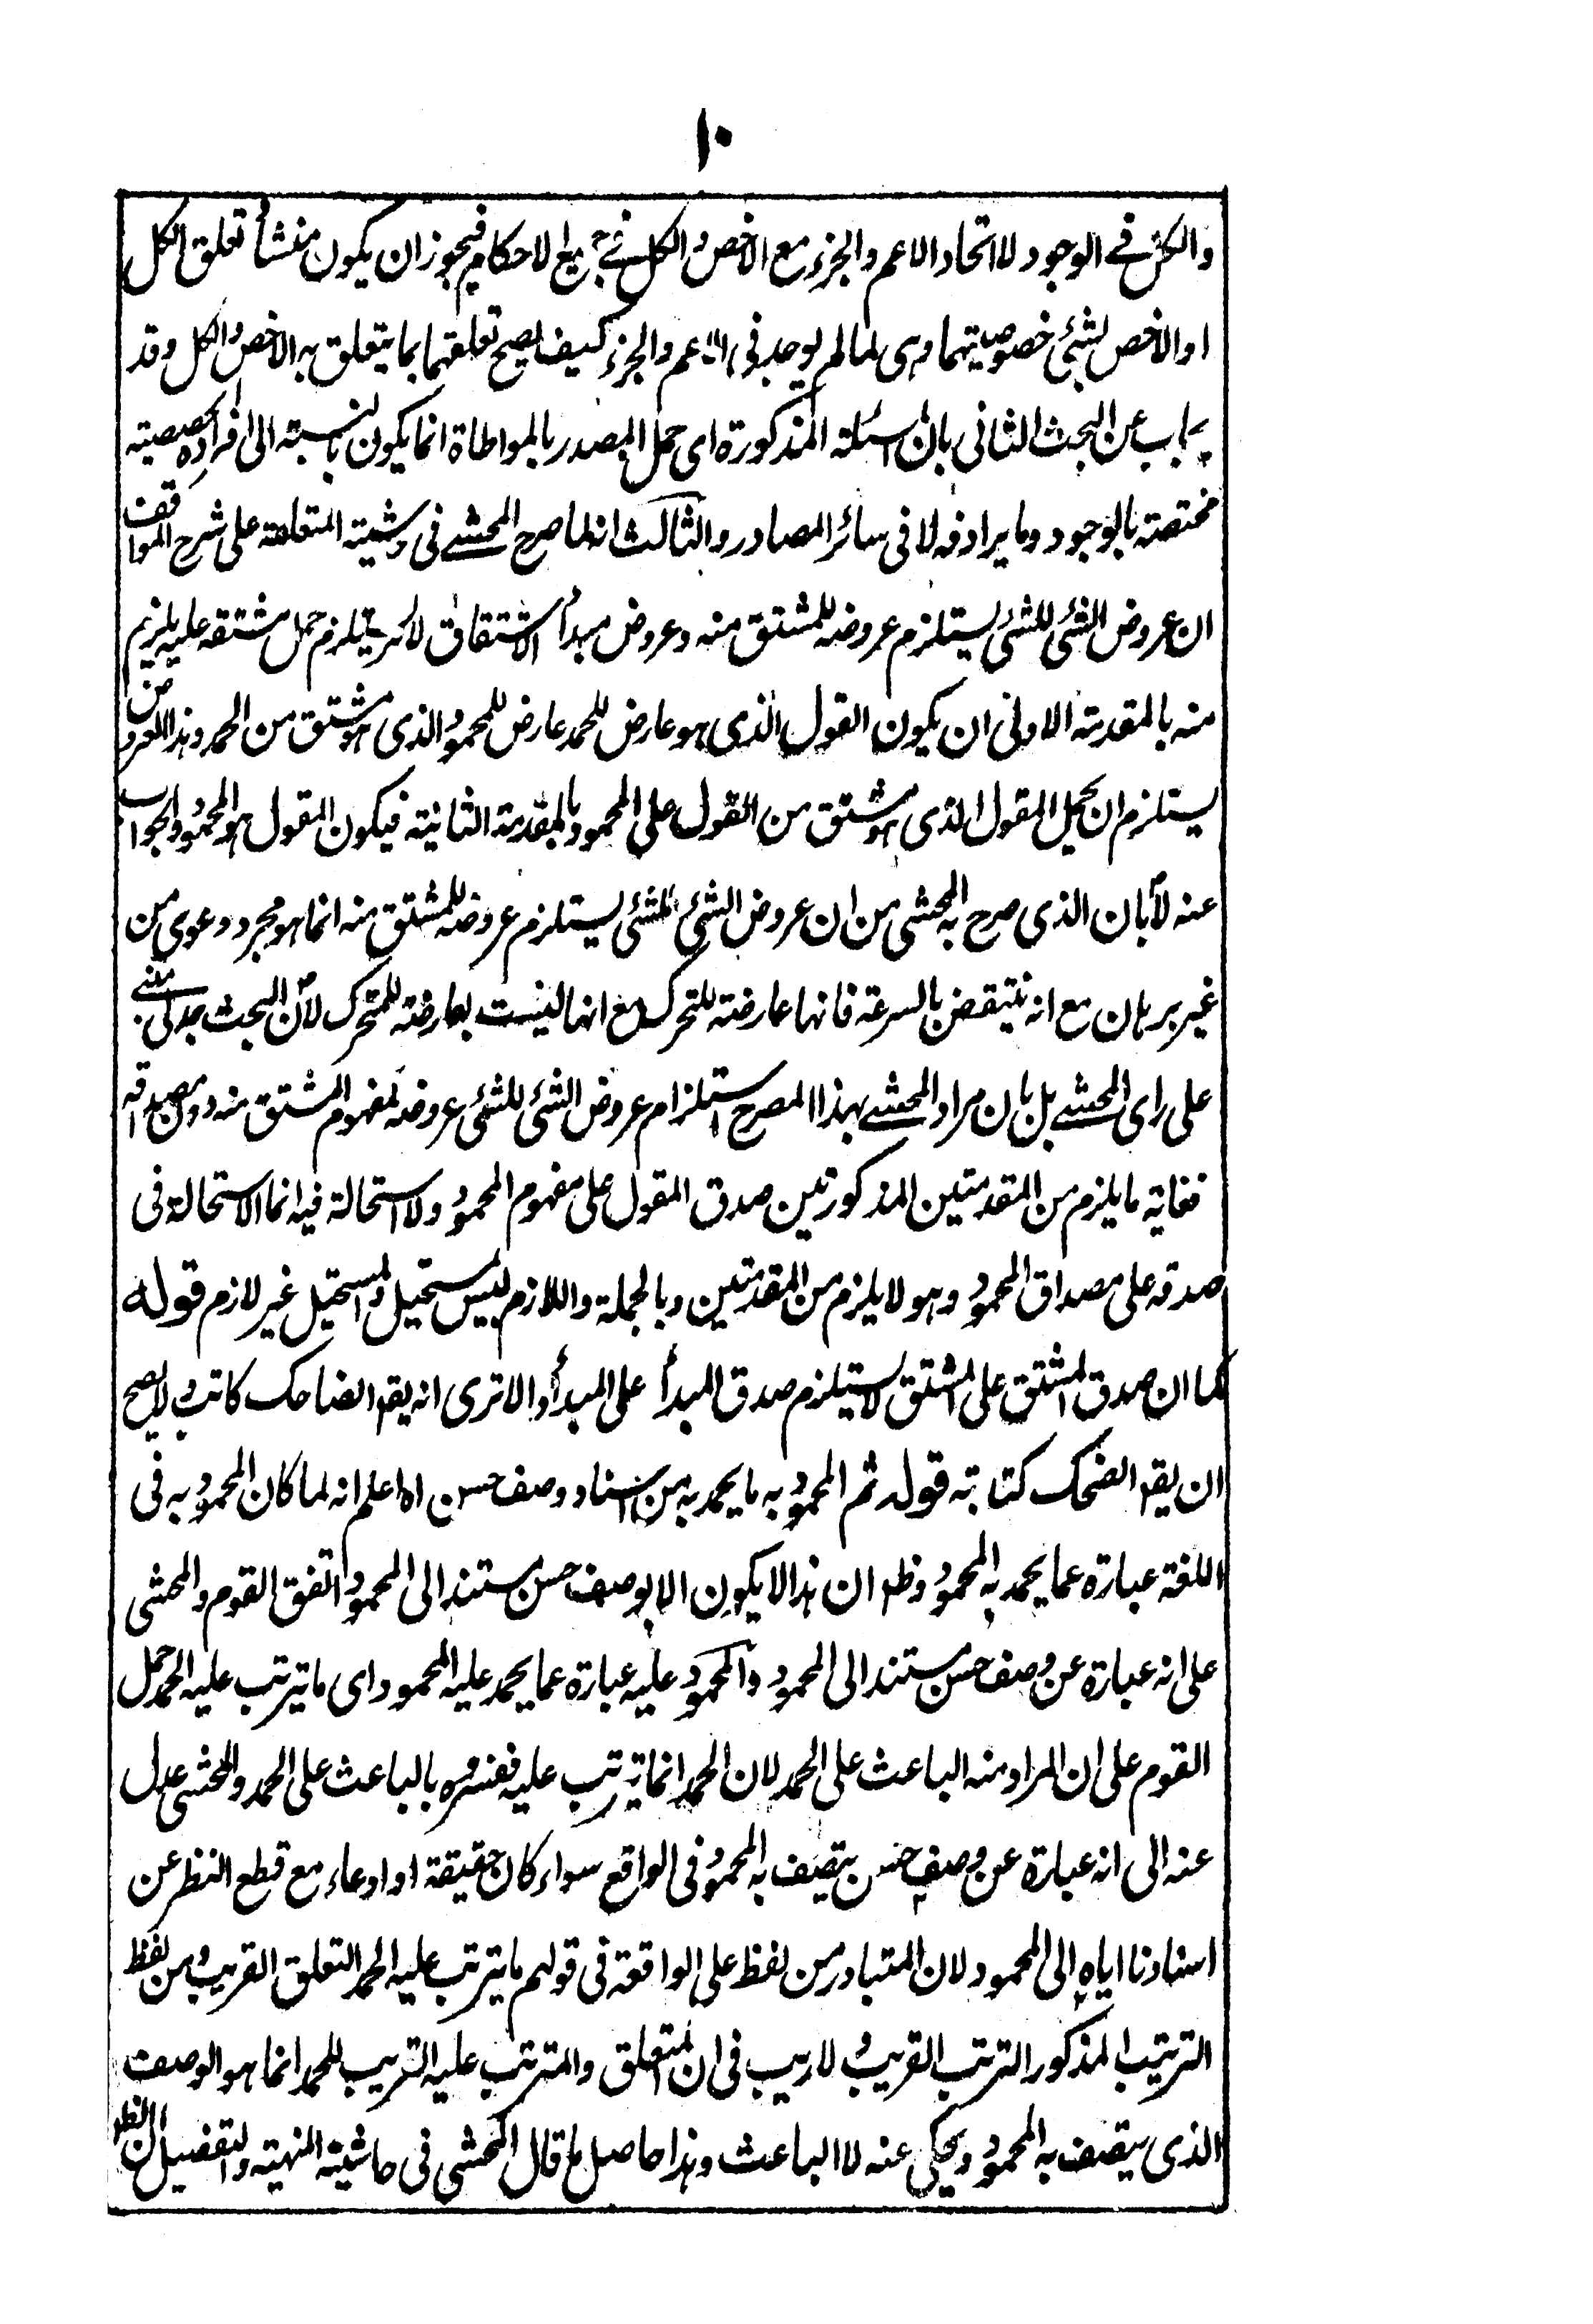 ١٠
والكل في الوجود لا اتحاد الاعم والجزء مع الاخص والكل في جميع الاحكام فيجوز ان يكون منشأ تعلق الكل
او الاخص لشئ خصوصيتهما وهى لما لم يوجد فى الاعم والجزء كيف يصح تعلقهما بما يتعلق به الاخص والكل وقد
يجاب عن البحث الثانى بان المسئلة المذكورة اى حمل المصدر بالمواطاة انما يكون بالنسبة الى افراده الحصصية
مختصة بالوجود وما يرادفه لا فى سائر المصادر والثالث انه لما صرح المحشے فى حاشيته المتعلقة على شرح المواقف
ان عروض الشئ للشئ يستلزم عروضه للمشتق منه وعروض مبدأ الاشتقاق لامر يستلزم حمل مشتقه عليه يلزم
منه بالمقدمة الاولى ان يكون القول الذى هو عارض للحمد عارض للمحمود الذى هو مشتق من الحمد وهذا العروض
يستلزم ان يحمل المقول الذى هو مشتق من القول على المحمود بالمقدمة الثانية فيكون المقول هو المحمود والجواب
عنه لا بان الذى صرح به المحشى من ان عروض الشئ للشئ يستلزم عروضه للمشتق منه انما هو مجرد دعوى من
غير برهان مع انه ينتقض بالسرعة فانها عارضة للتحرك مع انها ليست بعارضة للمتحرك لان البحث جدلى مبنے
على راى المحشے بل بان مراد المحشے بهذا المصرح استلزام عروض الشئ للشئ عروضه لمفهوم المشتق منه دون مصداقه
فغاية ما يلزم من المقدمتين المذكورتين صدق المقول على مفهوم المحمود ولا استحالة فيه انما الاستحالة فى
صدقه على مصداق المحمود وهو لا يلزم من المقدمتين وبالجملة واللازم ليس بمستحيل والمستحيل غير لازم قوله
كما ان صدق المشتق على المشتق لا يستلزم صدق المبدأ على المبدأ والا ترى انه يقه الضاحك كاتب ولا يصح
ان يقه الضحك كتابة قوله ثم المحمود به ما يحمد به من اسناد وصف حسن اه اعلم انه لما كان المحمود به فى
اللغة عبارة عما يحمد به المحمود وظه ان هذا لا يكون الا بوصف حسن مستند الى المحمود اتفق القوم والمحشى
على انه عبارة عن وصف حسن مستند الى المحمود والمحمود عليه عبارة عما يحمد عليه المحمود اى ما يترتب عليه الحمد حمل
القوم على ان المراد منه الباعث على الحمد لان الحمد انما يترتب عليه ففسروه بالباعث على الحمد والمحشى عدل
عنه الى انه عبارة عن وصف حسن يتصف به المحمود فى الواقع سواء كان حقيقة او ادعاء مع قطع النظر عن
اسنادنا اياه الى المحمود لان المتبادر من لفظ على الواقعة فى قولهم ما يترتب عليه الحمد التعلق القريب ومن لفظ
الترتب المذكور الترتب القريب ولا ريب فى ان المتعلق والمترتب عليه القريب للحمد انما هو الوصف
الذى يتصف به المحمود ويحكى عنه لا الباعث وهذا حاصل ما قال المحشى فى حاشية المنهية والتفصيل ان الظه